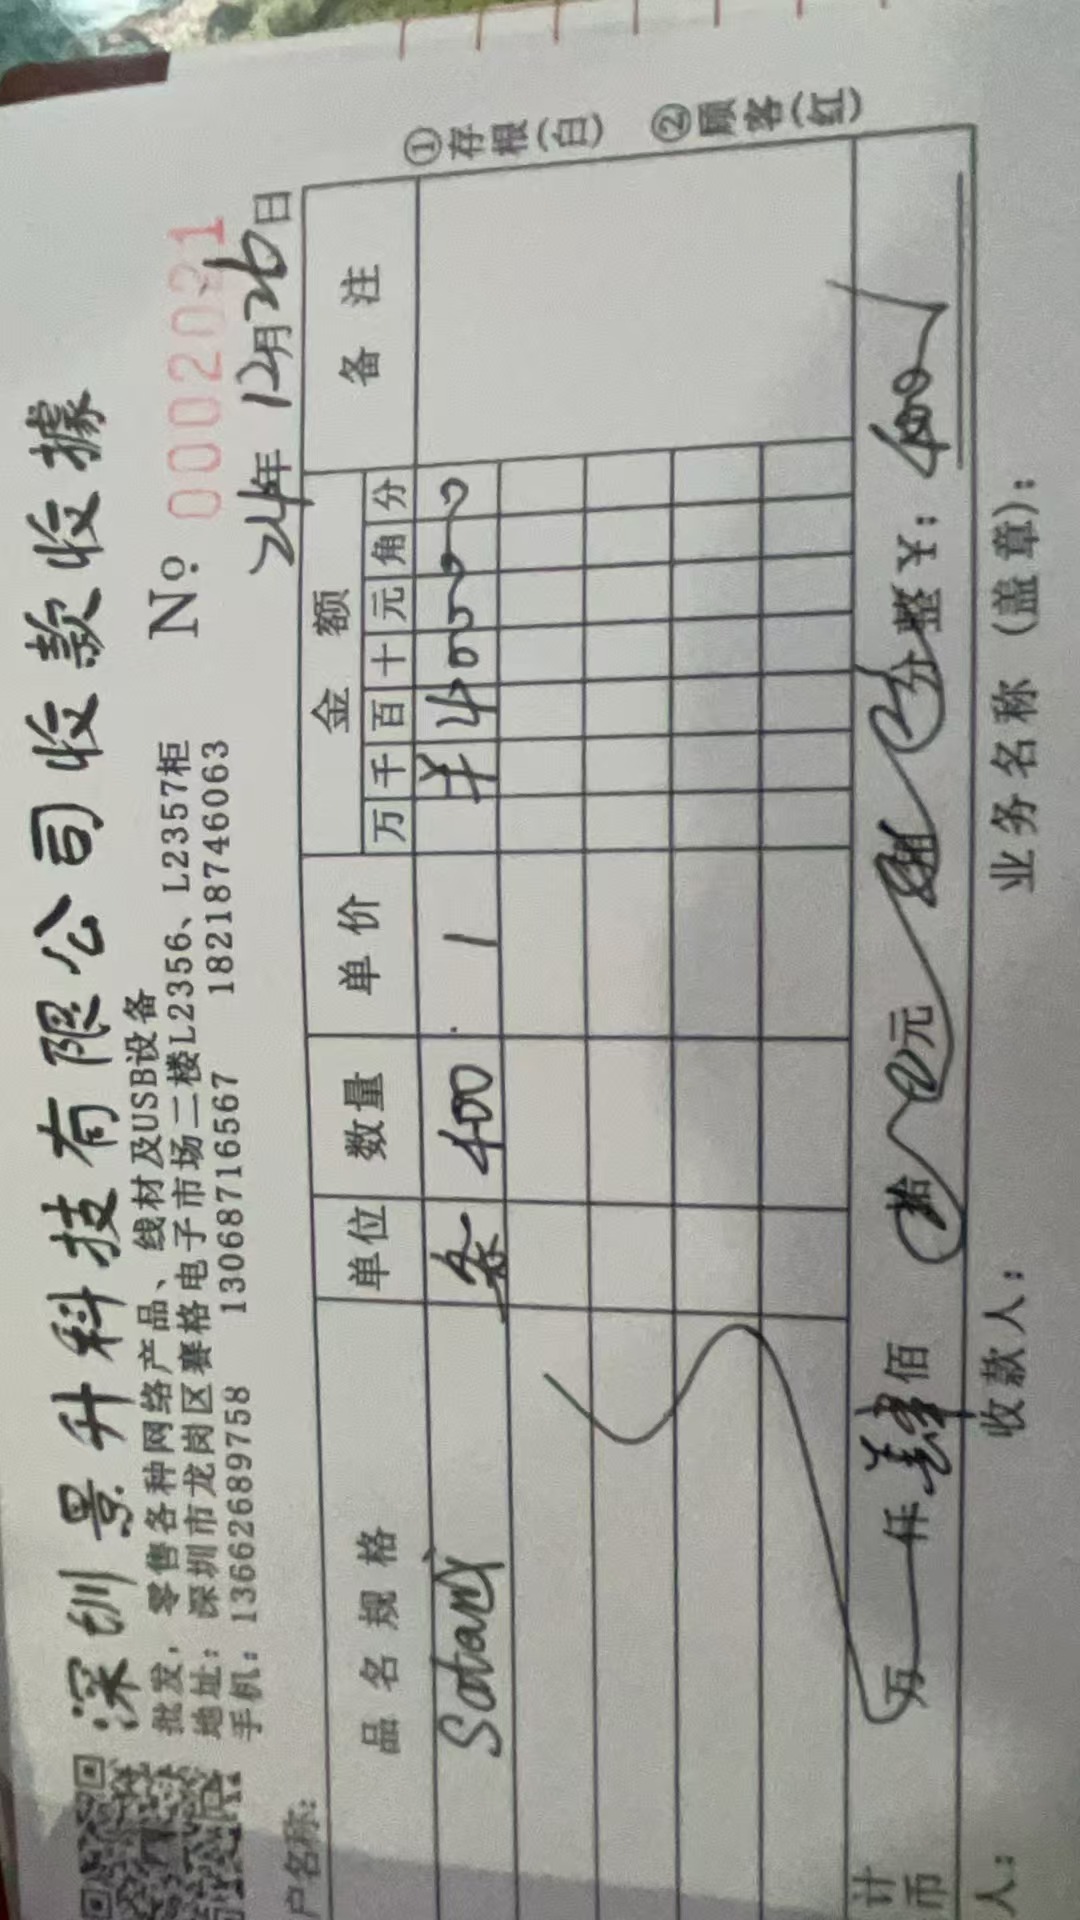 深圳景升科技有限公司收款收據
批发，零售各种网络产品、线材及USB设备
地址：深圳市龙岗区赛格电子市场二楼L2356、L2357柜
手机：13662689758 13068716567 18218746063
№ 0002021
户名称： 24年 12月26日
品名规格 单位 数量 单价 金额 备注
万 千 百 十 元 角 分
Sata线 条 400 1 ¥ 4 0 0 0 0
①存根(白) ②顾客(红)
计 万 仟 肆 佰 拾 元 角 分整￥：400
币
人： 收款人： 业务名称（盖章）：